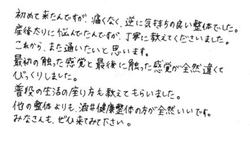 初めて来たんですが、痛くなく、逆に気持ちの良い整体でした。
産後太りに悩んでたんですが、丁寧に教えてくださいました。
これから、また通いたいと思います。
最初の触った感覚と最後に触った感覚が全然違くて
びっくりしました。
普段の生活の座り方も教えてもらいました。
他の整体よりも、酒井健康整体の方が全然いいです。
みなさんも、ぜひ来てみて下さい。